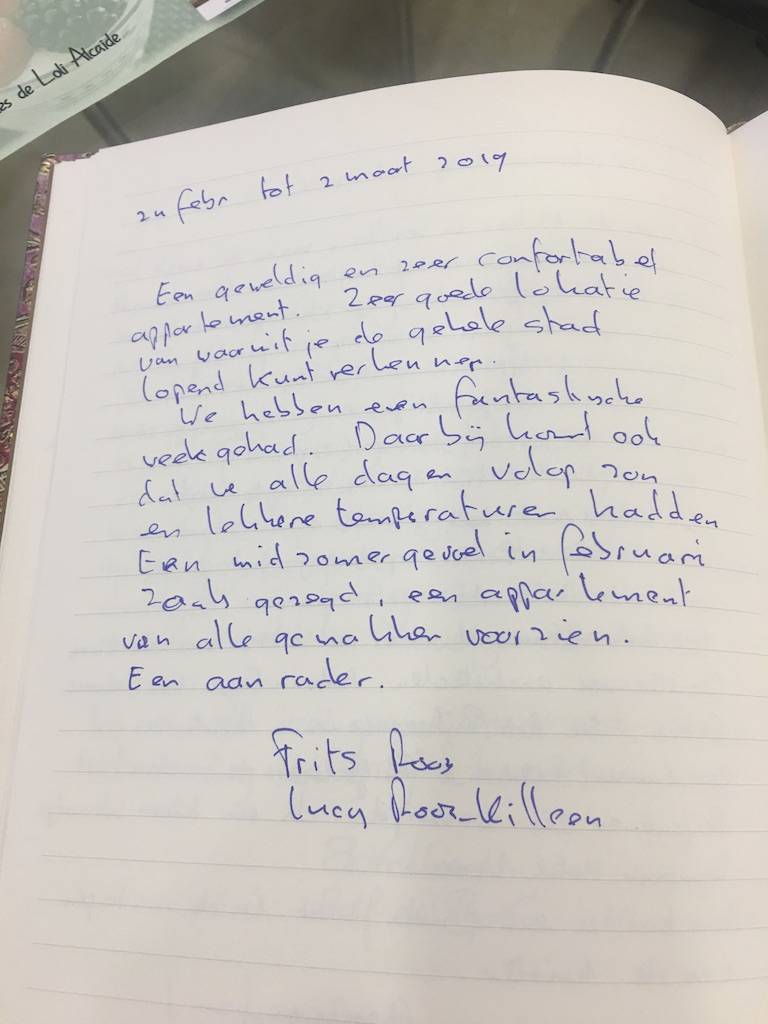 es de Loli Alcaide
24 febr tot 2 maart 2019
Een geweldig en zeer confortabel
appartement. Zeer goede lokatie
van waaruit je de gehele stad
lopend kunt verkennen.
We hebben een fantastische
week gehad. Daarbij komt ook
dat we alle dagen volop zon
en lekkere temperaturen hadden
Een midzomergevoel in februari
Zoals gezegd, een appartement
van alle gemakken voorzien.
Een aanrader.
Frits Roos
Lucy Roos-Killeen